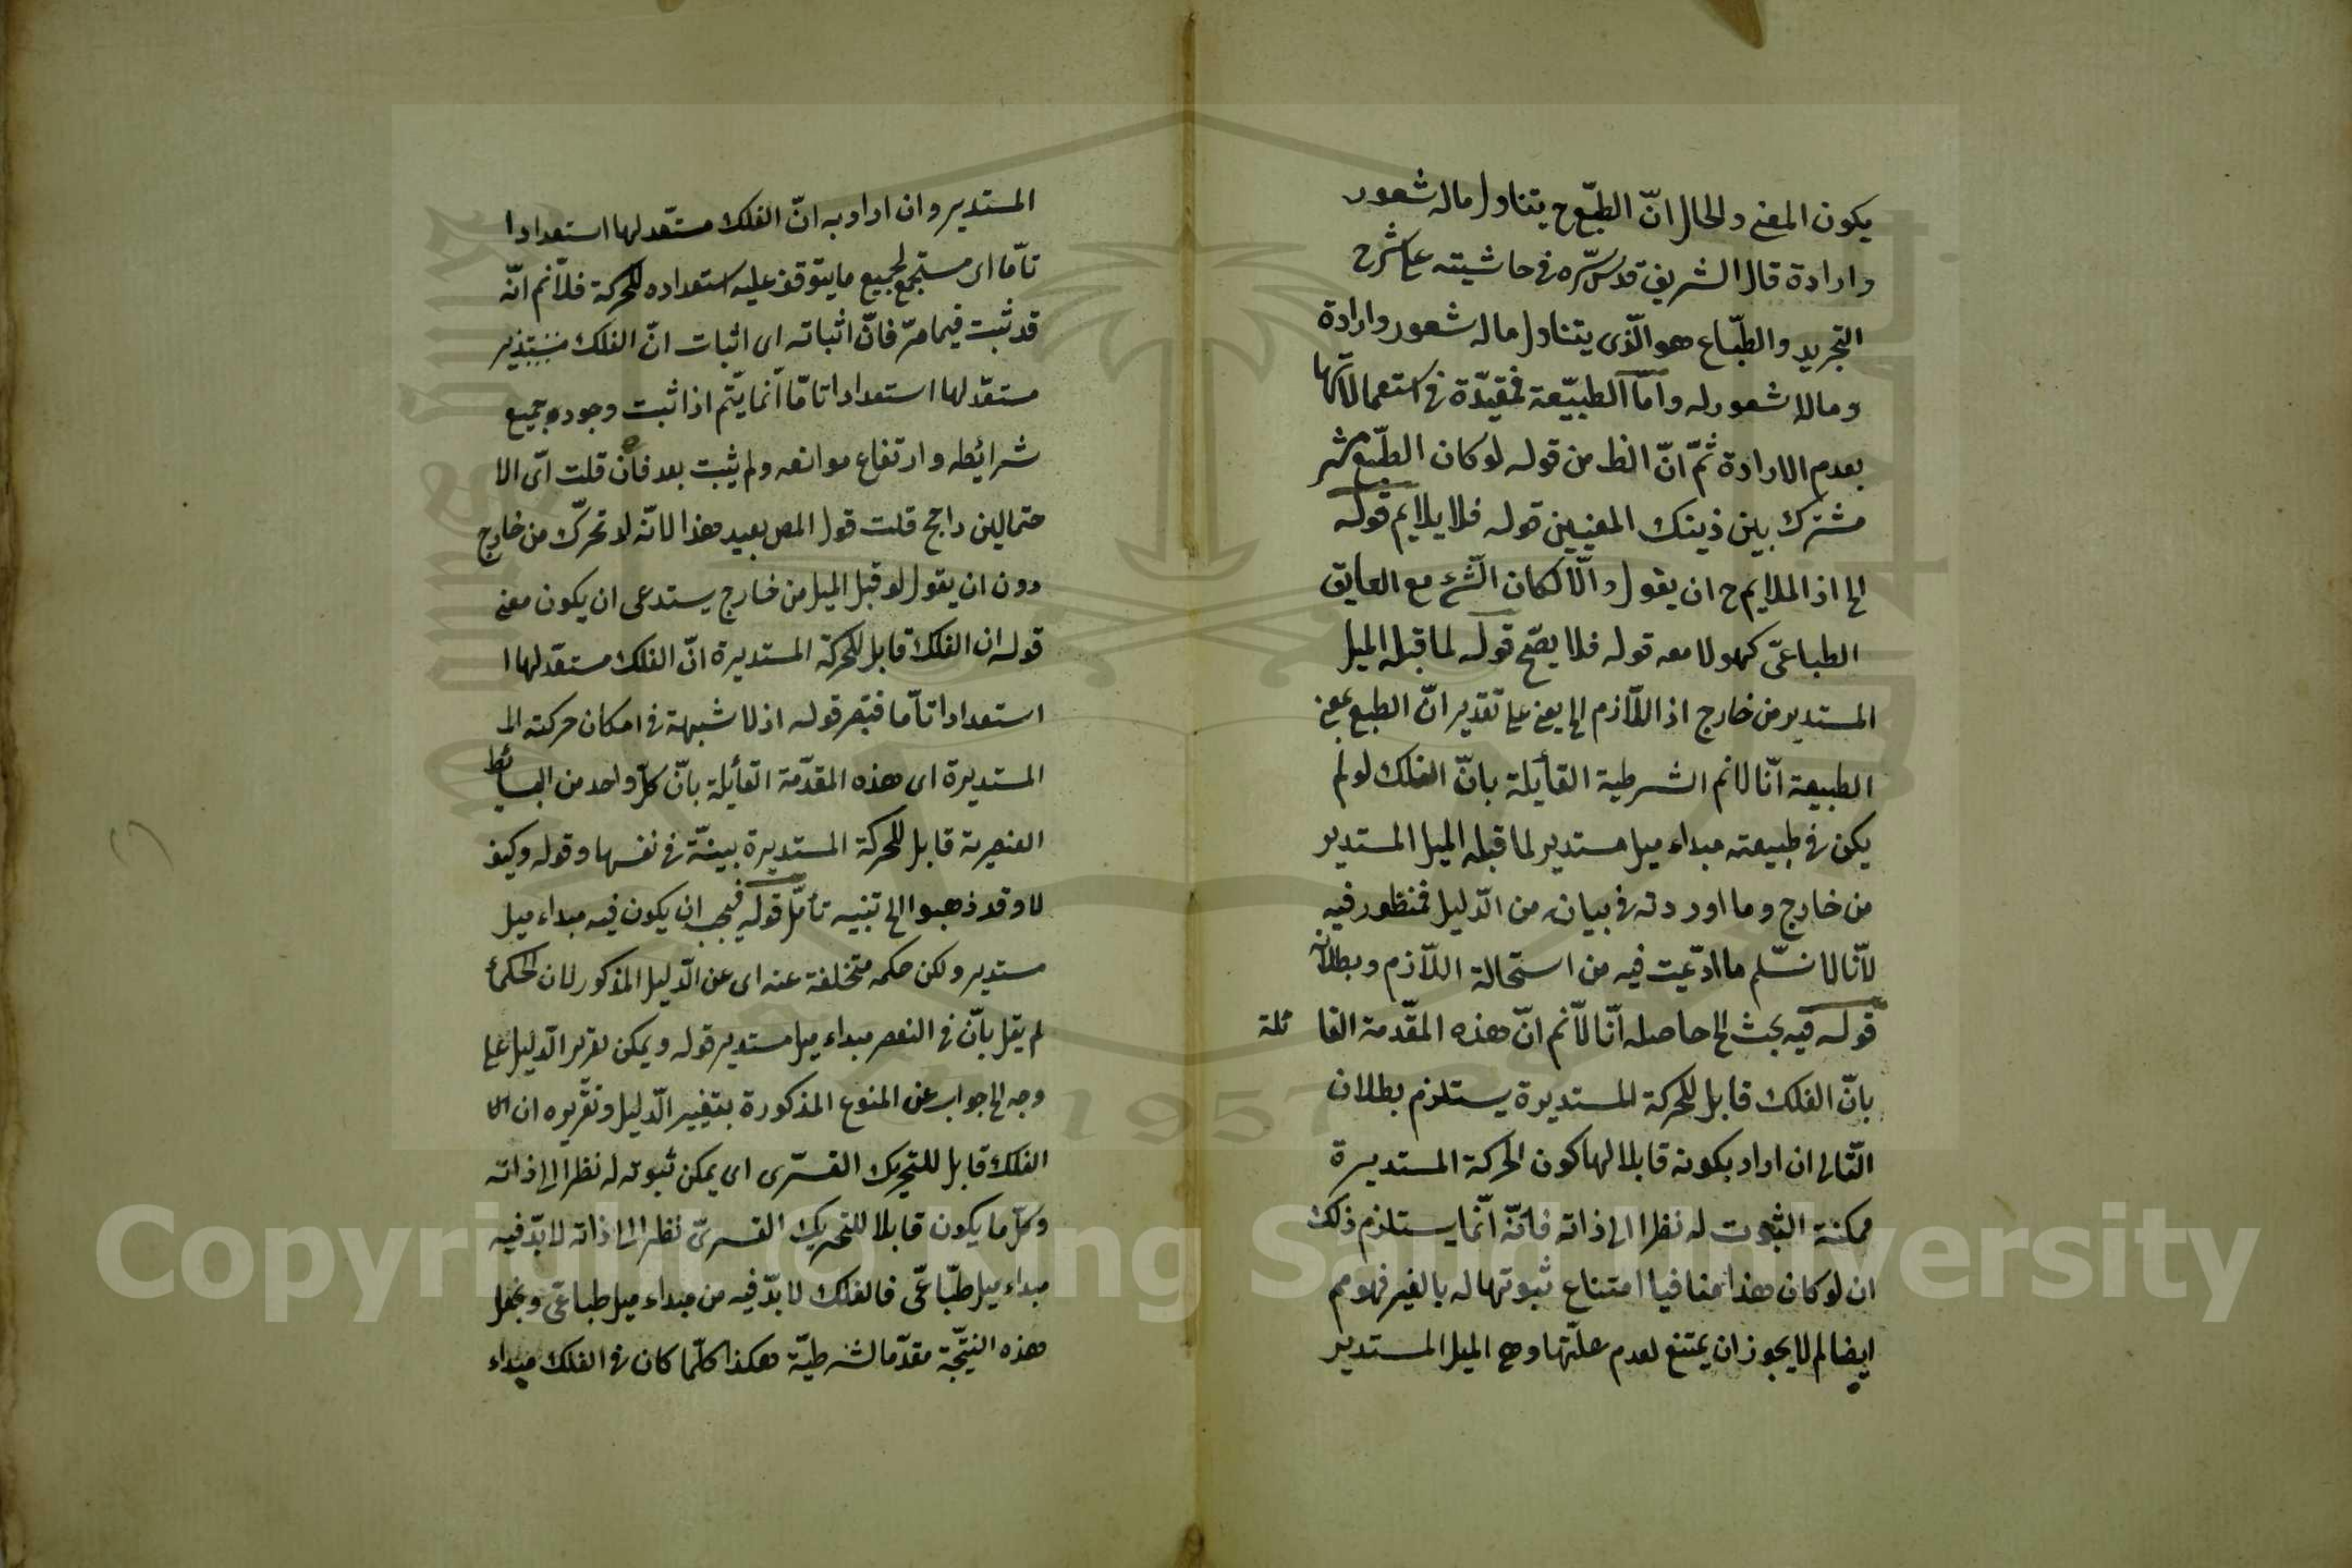 يكون المعنى والحال انّ الطبّع ح يتناول ماله شعور
وارادة قال الشريف قدس سرّه فى حاشيته على شرح
التجريد والطبّاع هو الّذى يتناول ماله شعور وارادة
وما لا شعور له وامّا الطبيّعة فمقيّدة فى استعمالاتها
بعدم الارادة ثمّ انّ الظ من قوله لو كان الطبّع
مشترك بين ذينك المعنيين قوله فلا يلايم قوله
الخ اذ الملايم ح ان يقول والّا لكان الشّئ مع العايق
الطباعىّ كهو لا معه قوله فلا يصّح قوله لما قبل الميل
المستدير من خارج اذ اللّازم الخ يعنى على تقدير انّ الطبع بمعنى
الطبيعة انّا لانم الشرطية القائلة بانّ الفلك لو لم
يكن فى طبيعته مبداء ميل مستدير لما قبل الميل المستدير
من خارج وما اوردته فى بيانه من الدّليل فمنظور فيه
لانّا لا نسّلم ما ادّعيت فيه من استحالة اللّازم وبطلانه
قوله فيه بحث الخ حاصله انّا لانم انّ هذه المقّدمة القا ئلة
بانّ الفلك قابل للحركة المستديرة يستلزم بطلان
التّالى ان اراد بكونه قابلا لها كون الحركة المستديرة
ممكنة الثبوت له نظرا الى ذاته فانّه انّما يستلزم ذلك
ان لو كان هذا منافيا امتناع ثبوتها له بالغير فهو مم
ايضا لم لا يجوز ان يمتنع لعدم علّتها وهى الميل المستدير
المستدير وان اراد به انّ الفلك مستّعد لها استعدادا
تامّا اى مستجمع لجميع ما يتوقف عليه استعداده للحركة فلانم انّه
قد ثبت فيما مرّ فانّ اثباته اى اثبات انّ الفلك
مستعدّ لها استعدادا تامّا انّما يتّم اذا ثبت وجود جميع
شرائطه وارتفاع موانعه ولم يثبت بعد فان قلت اىّ الا
حتمالين راجح قلت قول المص بعيد هذا لانّه لو تحرّك من خارج
دون ان يقول لو قبل الميل من خارج يستدعى ان يكون معنى
قوله ان الفلك قابل للحركة المستديرة انّ الفلك مستعّد لها ا
استعدادا تامّا فتبصر قوله اذ لا شبهة فى امكان حركته الى
المستديرة اى هذه المقدّمة القائلة بانّ كلّ واحد من البسائط
العنصرية قابل للحركة المستديرة بينّة فى نفسها وقوله وكيف
لا وقد ذهبوا الى تنبيه تأمّل قوله فيجب ان يكون فيه مبداء ميل
مستدير ولكن حكمه متخلفة عنه اى عن الدّليل المذكور لان الحكماء
لم يقل بانّ فى العنصر مبداء ميل مستدير قوله ويمكن تقرير الدليل على
وجه الخ جواب عن المنوع المذكورة بتغيير الدّليل وتقريره ان
الفلك قابل للتحريك القسرّى اى يمكن ثبوته له نظرا الى ذاته
وكلّ ما يكون قابلا للتحريك القسرىّ نظرا الى ذاته لا بدّ فيه
مبداء ميل طبّاعىّ فالفلك لا بدّ فيه من مبداء ميل طباعّى ونجعل
هذه النتيّجة مقدّما لشرطيّة هكذا كلّما كان فى الفلك مبداء
Copyright © King Saud University
1957